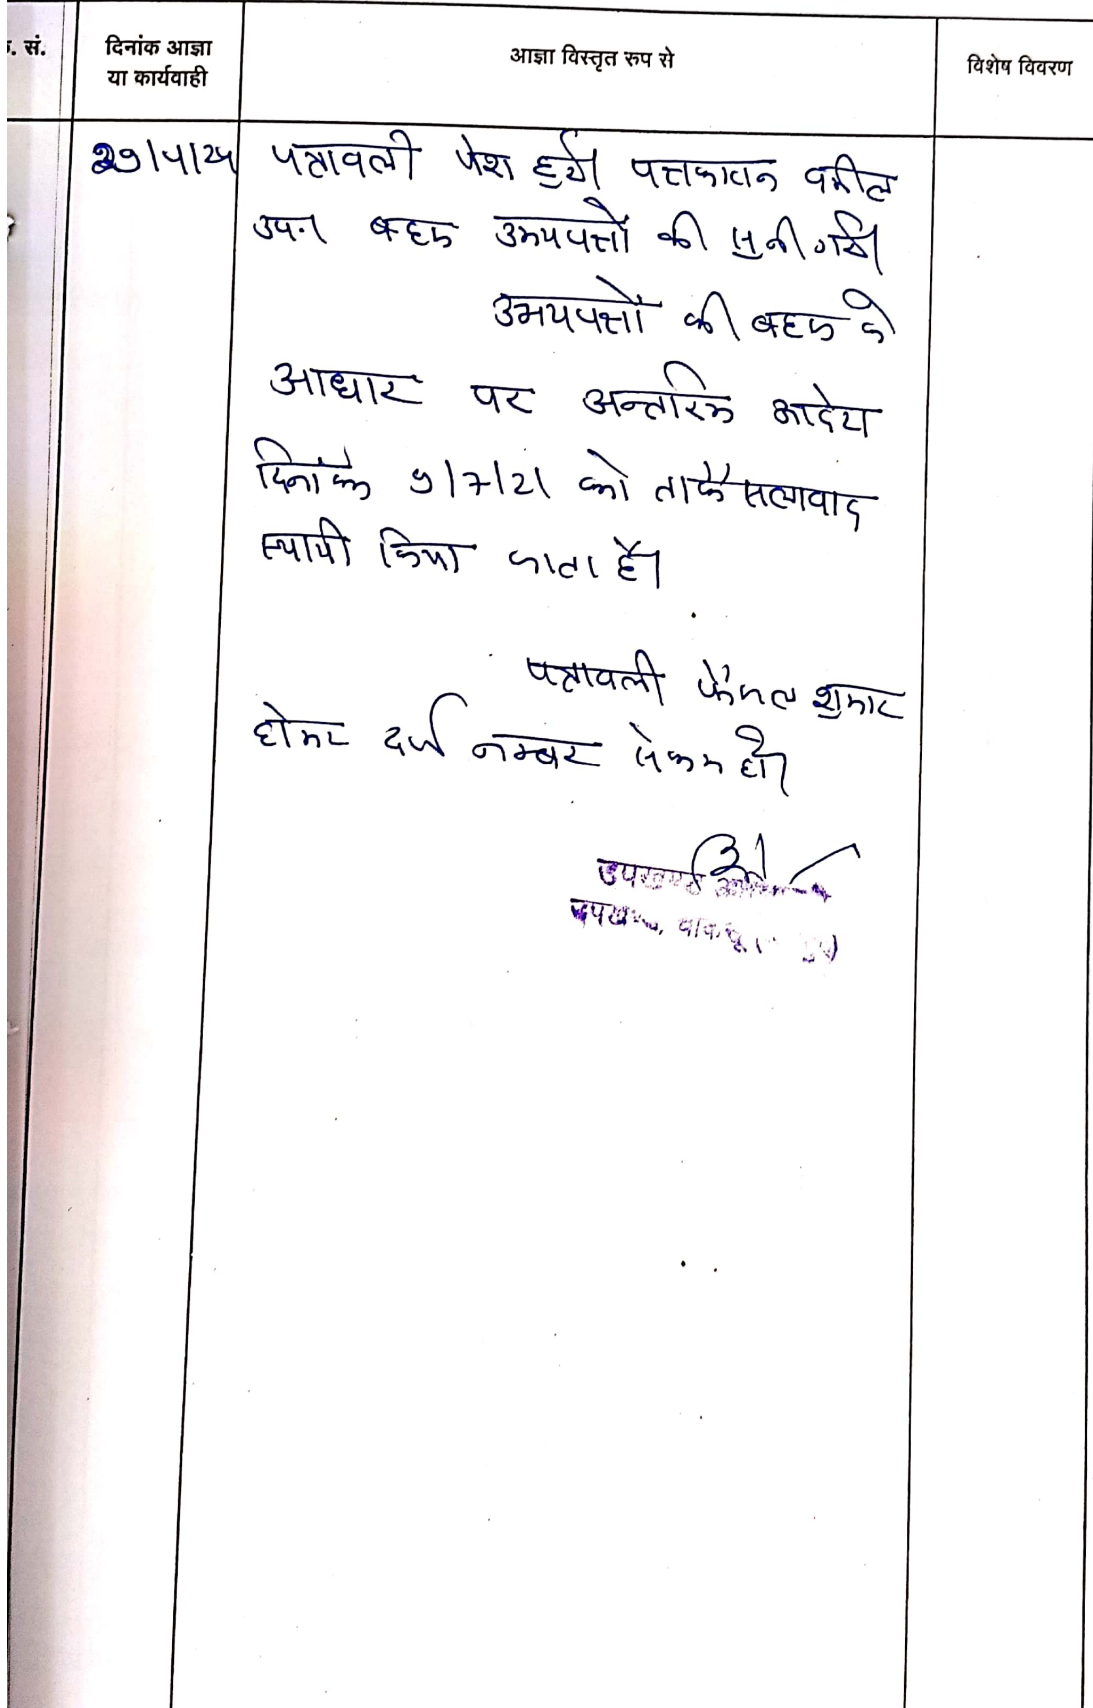 . सं.
दिनांक आज्ञा
या कार्यवाही
आज्ञा विस्तृत रुप से
विशेष विवरण
पत्रावली पेश हुयी पक्षकारान वकील
उप.। बहस उभयपक्षों की सुनी गयी।
उभयपक्षों की बहस के
आधार पर अन्तरिम आदेश
दिनांक 9/7/21 को ताफैसलावाद
स्थायी किया जाता है।
पत्रावली फैसल शुमार
होकर दर्ज नम्बर से कम हो।
उपखण्ड